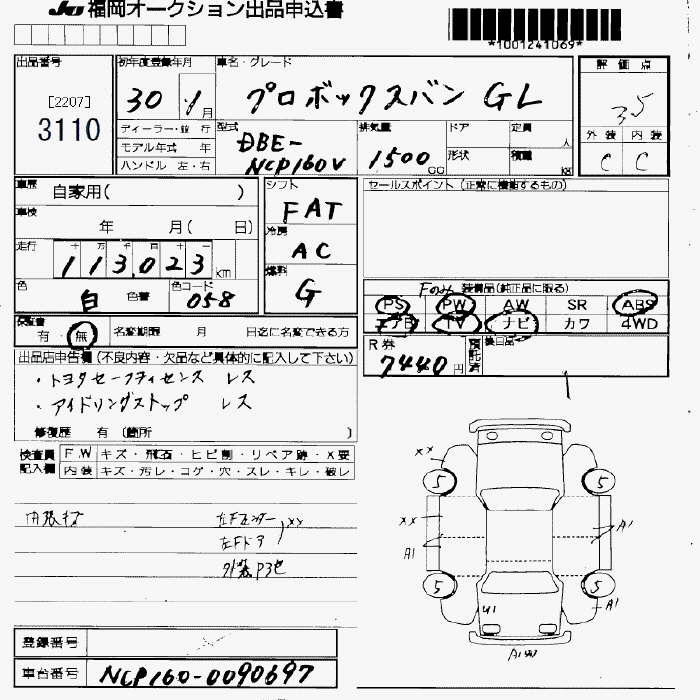 JU 福岡オークション出品申込書
*1001241069*
出品番号
[2207]
3110
初年度登録年月
30 . 1 月
車名・グレード
プロボックスバン GL
評価点
3.5
外装 内装
C C
ディーラー・並行
モデル年式 年
ハンドル 左・右
型式
DBE-
NCP160V
排気量
1500 CC
ドア
形状
定員
人
積載
KG
車歴
自家用( )
車検
年 月( 日)
走行
十 万 千 百 十 一
113,023 km
色
白
色替
色コード
058
シフト
FAT
冷房
AC
燃料
G
セールスポイント (正常に機能するもの)
Fのみ 装備品(純正品に限る)
PS PW AW SR ABS
エアB TV ナビ カワ 4WD
R券
7440円
預託済
後日品
保証書
有・無
名変期限 月 日迄に名変できる方
出品店申告欄 (不良内容・欠品など具体的に記入して下さい)
・トヨタセーフティセンス レス
・アイドリングストップ レス
修復歴 有 〔箇所 〕
検査員記入欄
F.W キズ・飛石・ヒビ割・リペア跡・X要
内装 キズ・汚レ・コゲ・穴・スレ・キレ・破レ
左Fフェンダー
左Fドア
XX
外装P3色
XX
5 5
XX
A1 A1
5 5
U1 A1
登録番号
車台番号
NCP160-0090697